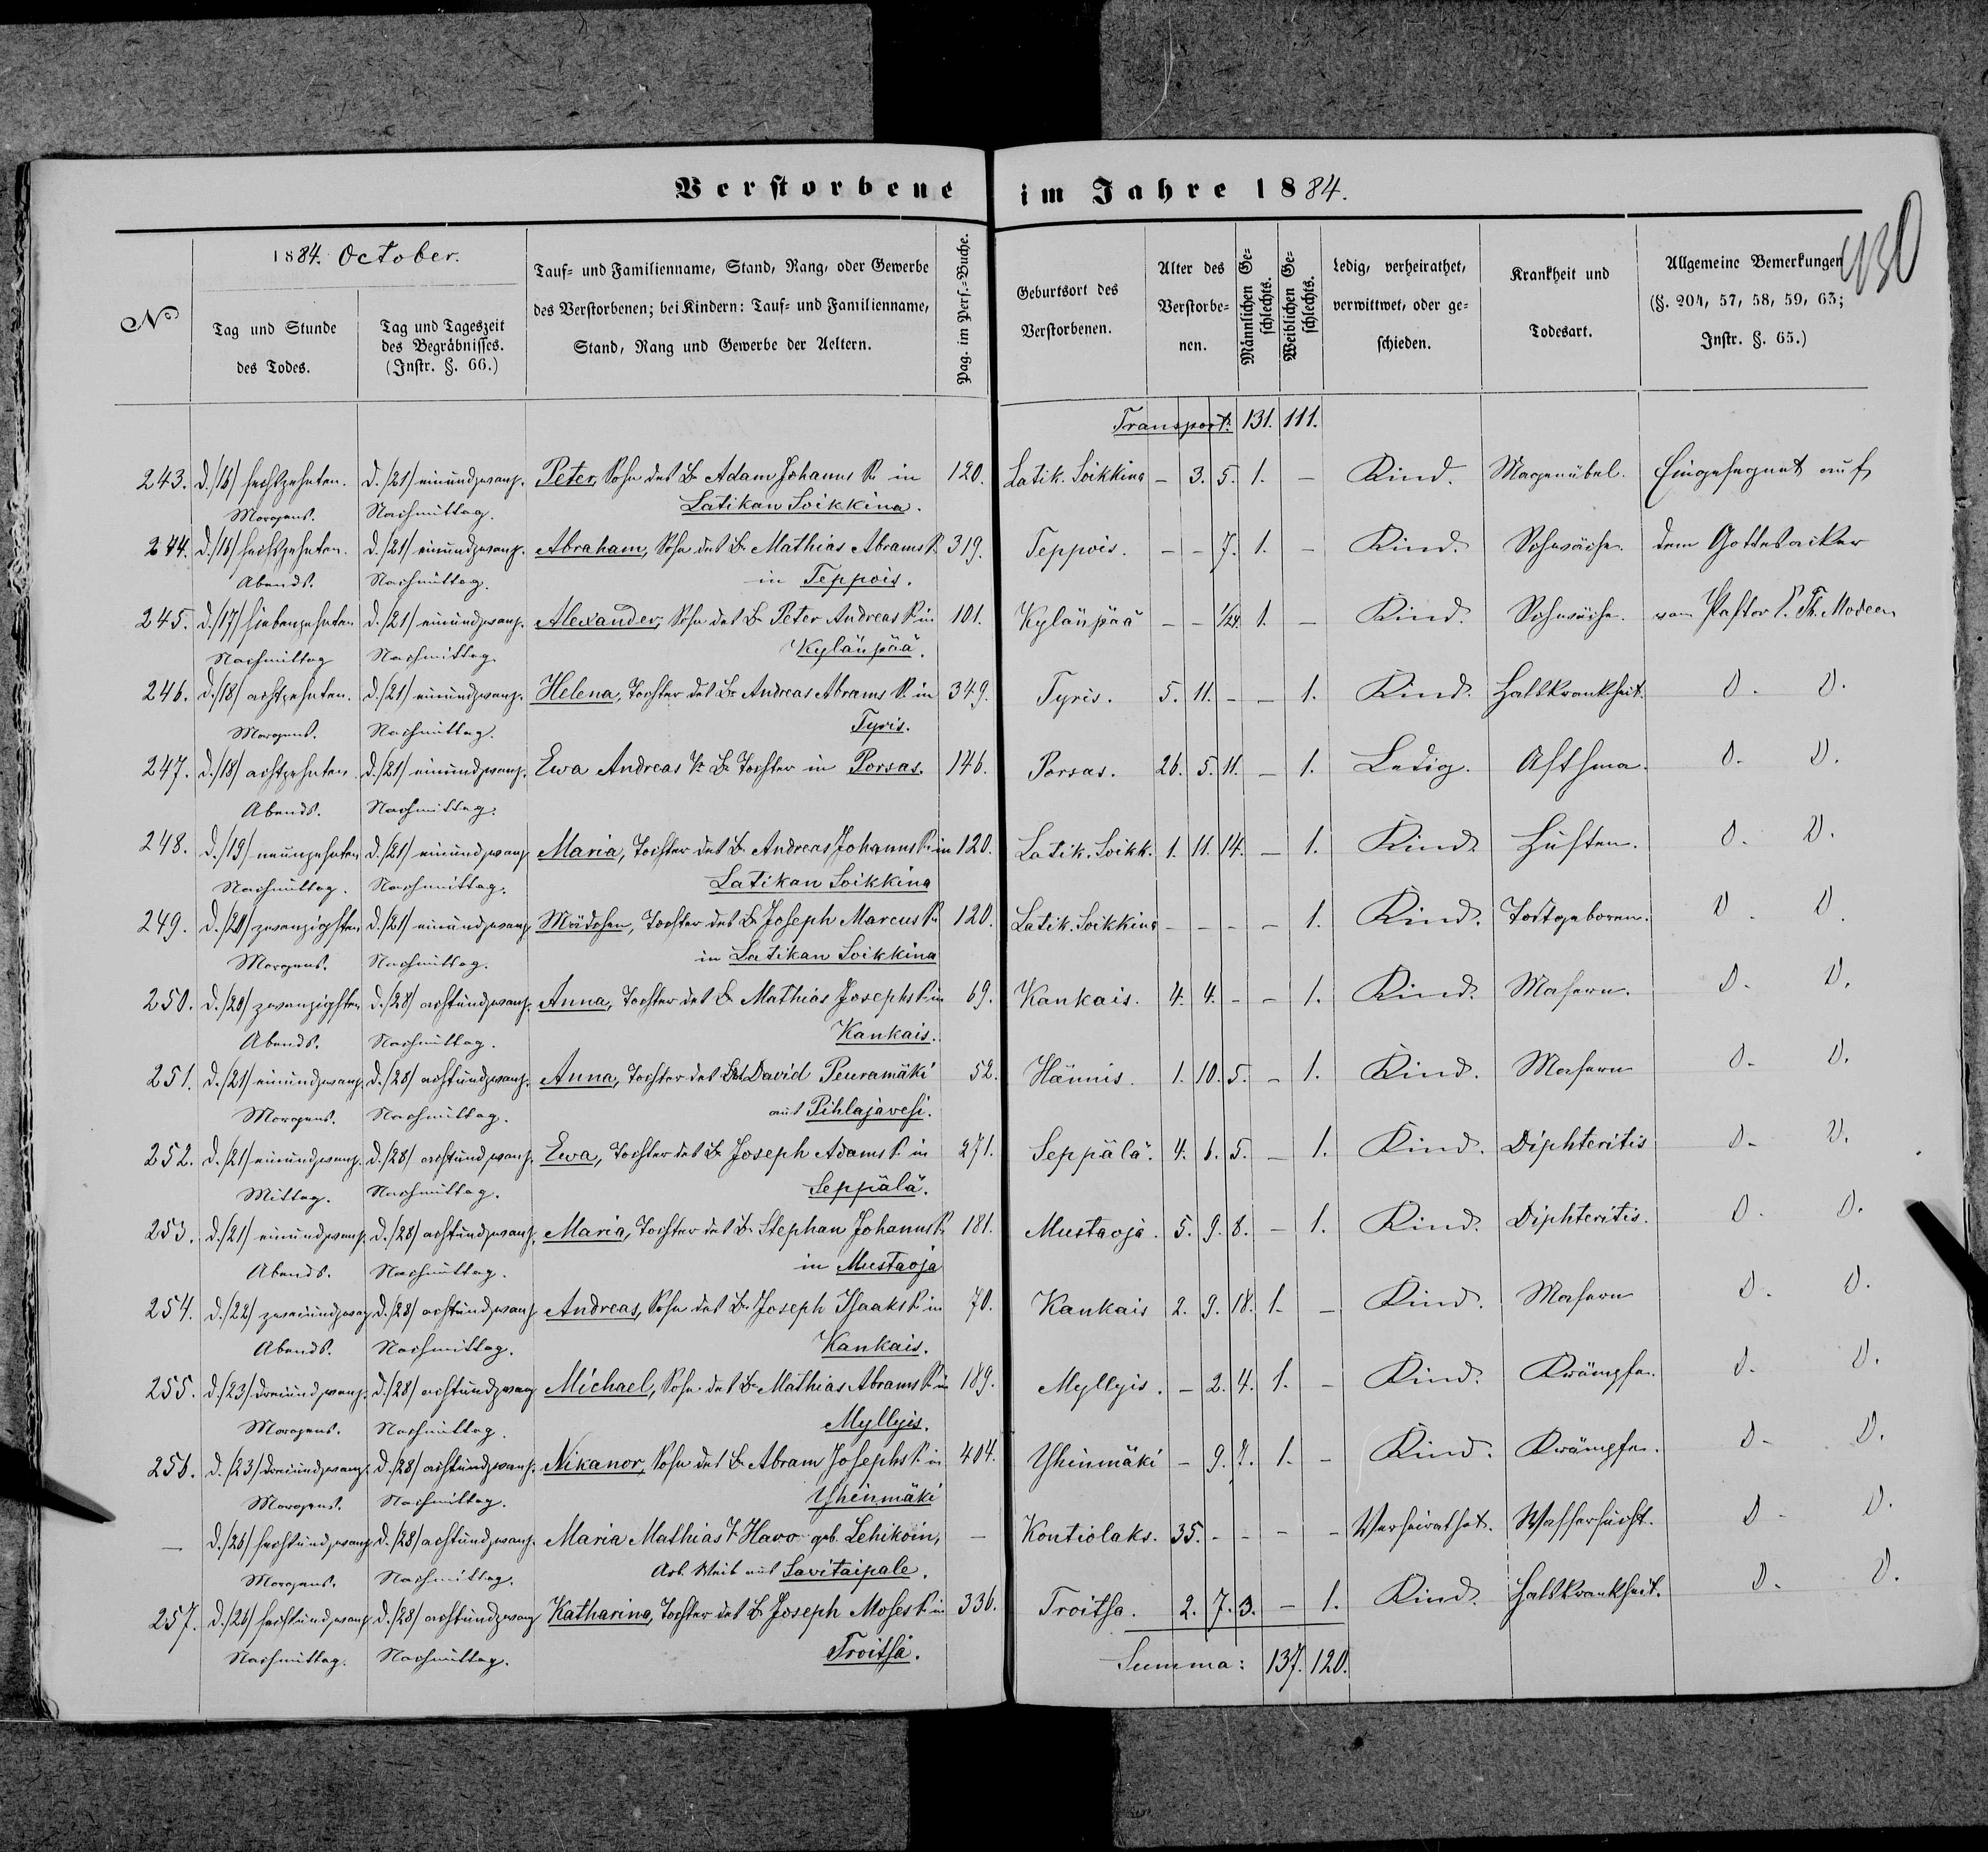 Verstorbene im Jahre 1884.
430
№
1884. October.
Tag und Stunde des Todes.
Tag und Tageszeit des Begräbnisses. (Instr. §. 66.)
Tauf- und Familienname, Stand, Rang, oder Gewerbe des Verstorbenen; bei Kindern: Tauf- und Familienname, Stand, Rang und Gewerbe der Aeltern.
Pag. im Pers.-Buche.
Geburtsort des Verstorbenen.
Alter des Verstorbenen.
Männlichen Geschlechts.
Weiblichen Geschlechts.
Ledig, verheirathet, verwittwet, oder geschieden.
Krankheit und Todesart.
Allgemeine Bemerkungen (§. 204, 57, 58, 59, 63; Instr. §. 65.)
Transport: 131. 111.
243. d./16/ sechszehnten. d./21/ einundzwanz. Peter, Sohn des Br Adam Johanns S. in 120. Latik. Soikkina - 3. 5. 1. - Kind. Magenübel. Eingesegnet auf
Morgens. Nachmittag. Latikan Soikkina.
244. d./16/ sechszehnten. d./21/ einundzwanz. Abraham, Sohn des Br Mathias Abrams S. 319. Teppois. - - 7. 1. - Kind. Schwäche. dem Gottesacker
Abends. Nachmittag. in Teppois.
245. d./17/ siebenzehnten d./21/ einundzwanz. Alexander, Sohn des Br Peter Andreas S. in 101. Kylänpää - - 1/24. 1. - Kind. Schwäche. von Pastor P. Th. Modeen
Nachmittag Nachmittag. Kylänpää.
246. d./18/ achtzehnten. d./21/ einundzwanz. Helena, Tochter des Br Andreas Abrams S. in 349. Tyris. 5. 11. - - 1. Kind. Halskrankheit. D. D.
Morgens. Nachmittag. Tyris.
247. d./18/ achtzehnten d./21/ einundzwanz. Ewa Andreas T. Br Tochter in Porsas. 146. Porsas. 26. 5. 11. - 1. Ledig. Asthma. D. D.
Abends. Nachmittag.
248. d./19/ neunzehnten d./21/ einundzwanz Maria, Tochter des Br Andreas Johanns S. in 120. Latik. Soikk. 1. 11. 14. - 1. Kind. Husten. D. D.
Nachmittag. Nachmittag. Latikan Soikkina
249. d./20/ zwanzigsten d./21/ einundzwanz Mädchen, Tochter des Br Joseph Marcus S. 120. Latik. Soikkina - - - - 1. Kind. Todtgeboren. D. D.
Morgens. Nachmittag. in Latikan Soikkina
250. d./20/ zwanzigsten d./28/ achtundzwanz. Anna, Tochter des Br Mathias Josephs S. in 69. Kankais. 4. 4. - - 1. Kind. Masern. D. D.
Abends. Nachmittag. Kankais.
251. d./21/ einundzwanz. d./28/ achtundzwanz. Anna, Tochter des David Peuramäki 52. Hännis. 1. 10. 5. - 1. Kind. Masern D. D.
Morgens. Nachmittag. aus Pihlajavesi.
252. d./21/ einundzwanz. d./28/ achtundzwanz. Ewa, Tochter des Br Joseph Adams S. in 271. Seppälä. 4. 6. 5. - 1. Kind. Diphteritis D. D.
Mittag. Nachmittag. Seppälä.
253. d./21/ einundzwanz. d./28/ achtundzwanz. Maria, Tochter des Br Stephan Johanns S. 181. Mustaoja. 5. 9. 8. - 1. Kind. Diphteritis. D. D.
Abends. Nachmittag. in Mustaoja
254. d./22/ zweiundzwanz d./28/ achtundzwanz Andreas, Sohn des Br Joseph Isaaks S. in 70. Kankais 2. 9. 18. 1. - Kind. Masern D. D.
Abends. Nachmittag. Kankais.
255. d./23/ dreiundzwanz. d./28/ achtundzwanz Michael, Sohn des Br Mathias Abrams S. in 189. Myllyis. - 2. 4. 1. - Kind. Krämpfe. D. D.
Morgens. Nachmittag. Myllyis.
256. d./23/ dreiundzwanz. d./28/ achtundzwanz. Nikanor, Sohn des Br Abram Josephs S. in 404. Yhinmäki - 9. 7. 1. - Kind. Krämpfe. D. D.
Morgens. Nachmittag. Yhinmäki
- d./26/ sechsundzwanz d./28/ achtundzwanz. Maria Mathias T. Havo geb. Lehikoin, - Kontiolaks. 35. - - - - Verheirathet. Wassersucht. D. D.
Morgens. Nachmittag. Arb. Weib aus Savitaipale.
257. d./26/ sechsundzwanz d./28/ achtundzwanz Katharina, Tochter des Br Joseph Moses S. in 336. Troitsa. 2. 7. 3. - 1. Kind. Halskrankheit. D. D.
Nachmittag. Nachmittag. Troitsa.
Summa: 137. 120.